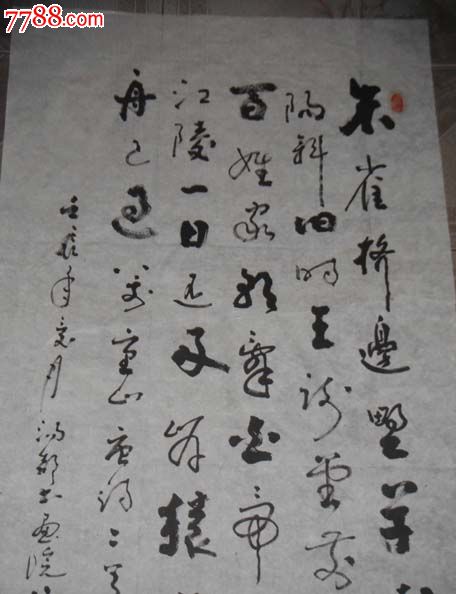 7788.com
朱雀桥邊野草
陽斜旧時王谢堂前
百姓家朝辞白帝
江陵一日还两岸猿
舟已過萬重山唐诗二首
壬辰年月都书画院